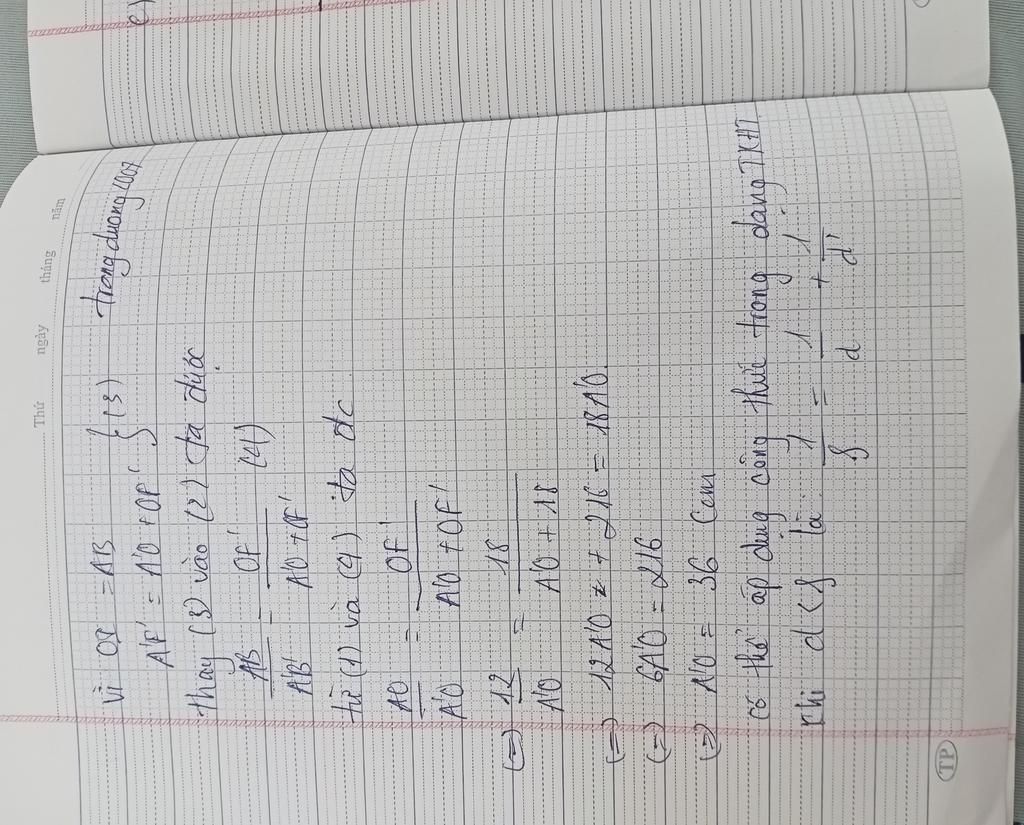 Thứ ngày tháng năm
Vì OI = AB } (3) trong đương 1007
A'F' = A'O + OF'
thay (3) vào (2) ta được
AB/A'B' = OF'/A'O + OF' (4)
từ (1) và (4) ta đc
AO/A'O = OF'/A'O + OF'
(=) 12/A'O = 18/A'O + 18
(=) 12A'O + 216 = 18A'O.
(=) 6A'O = 216
(=) A'O = 36 (cm)
có thể áp dụng công thức trong dạng TKHT.
khi d < f là. 1/f = 1/d + 1/d'
TP